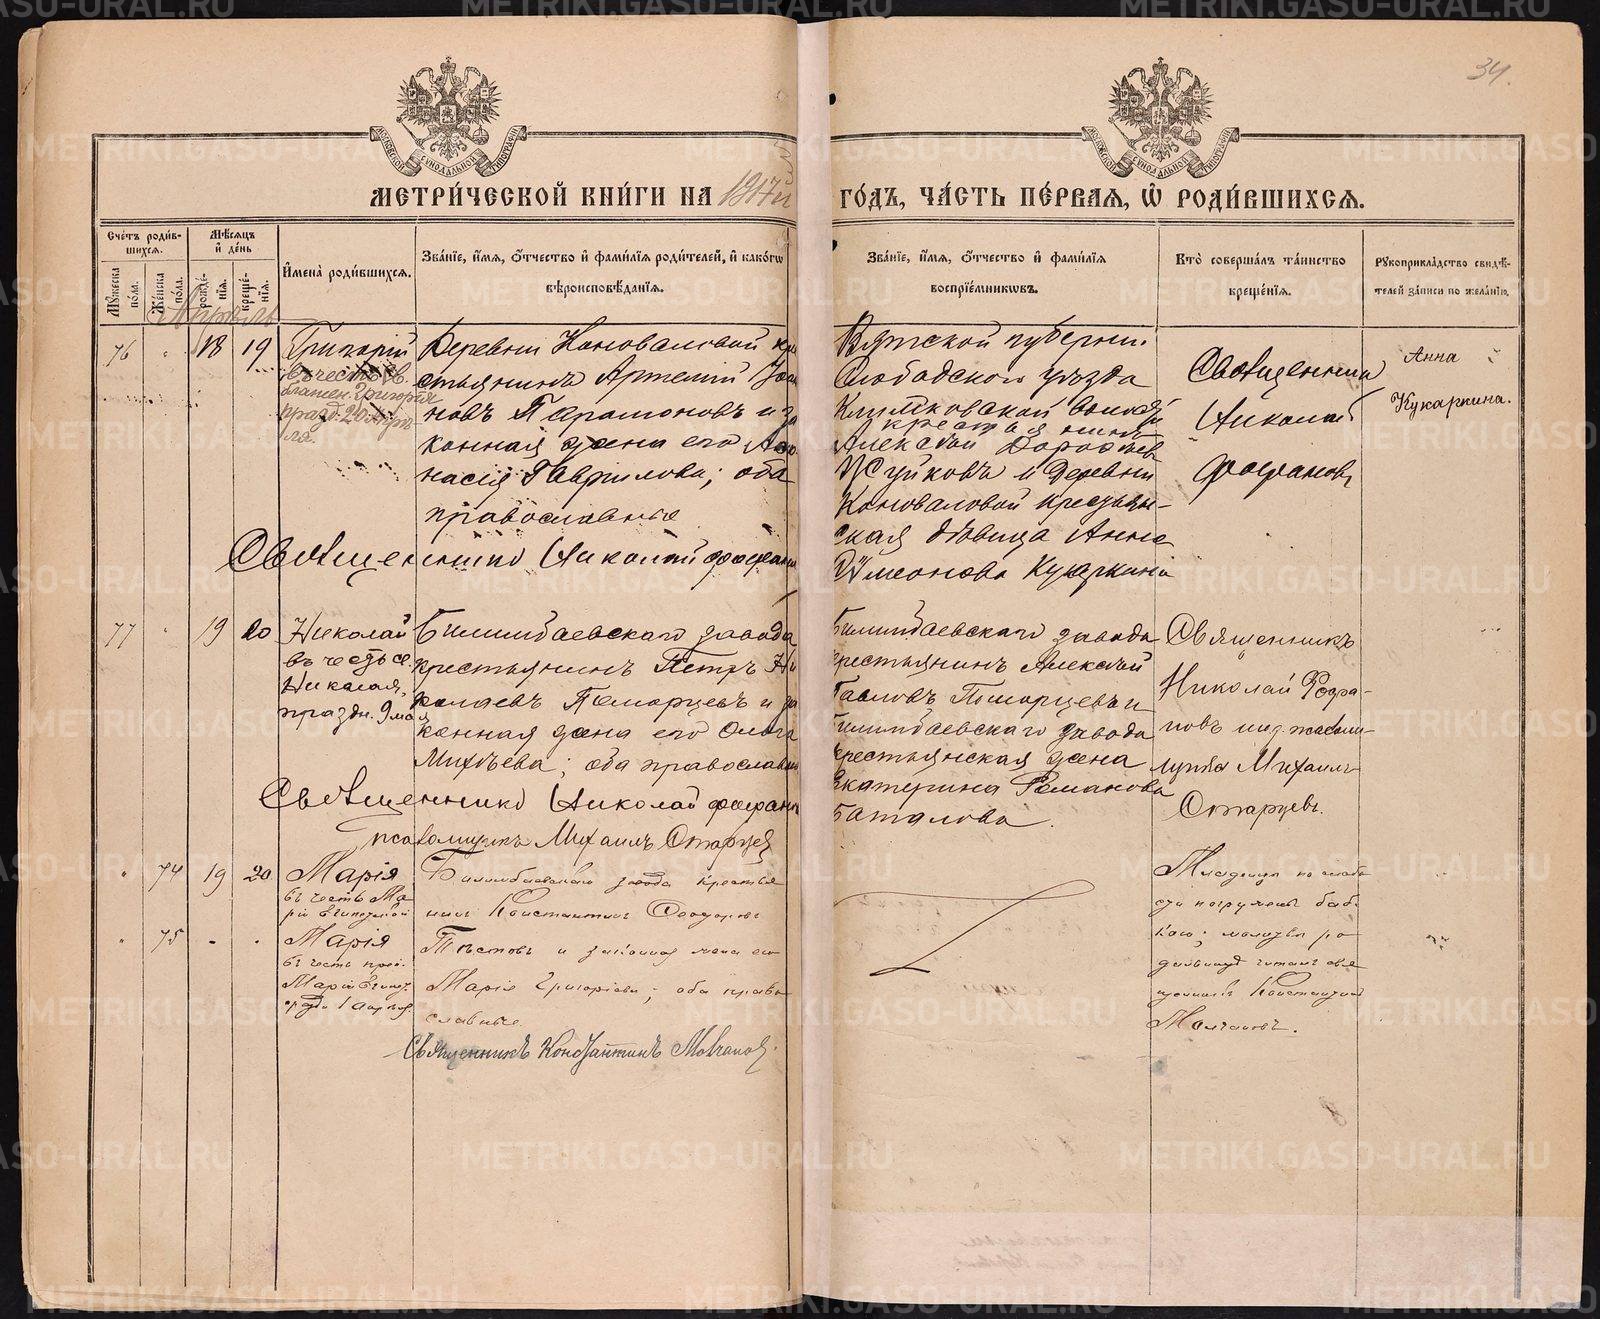 34.
МОСКОВСКОЙ СѴНОДАЛЬНОЙ ТИПОГРАФІИ
МОСКОВСКОЙ СѴНОДАЛЬНОЙ ТИПОГРАФІИ
МЕТРИ́ЧЕСКОЙ КНИ́ГИ НА 1917й
ГО́ДЪ, ЧА́СТЬ ПЕ́РВАЯ, Ѽ РОДИ́ВШИХСЯ.
Сче́тъ роди́в-
шихся.
Му́жеска по́ла.
Же́нска по́ла.
Мѣ́сяцъ
и҆ де́нь
рожде́-
нїя.
креще́-
нїя.
И҆мена̀ роди́вшихся.
Зва́нїе, и҆́мя, ѻ҆́тчество и҆ фами́лїя роди́телей, и҆ како́гѡ
вѣроисповѣ́данїя.
Зва́нїе, и҆́мя, ѻ҆́тчество и҆ фами́лїя
воспрїе́мникѡвъ.
Кто̀ соверша́лъ та́инство
креще́нїя.
Рукоприкла́дство свидѣ́-
телей за́писи по жела́нїю.
Апрѣль
76 " 18 19
Григорій
въ честь св.
блажен. Григорія
празд. 20. Апрѣ-
ля.
Деревни Коноваловой кре
стьянинъ Артемій Іоан
новъ Парамоновъ и за
конная жена его Ана
насія Гаврилова; оба
православные
Священникъ Николай Фофанов
Вятской губерни.
Слободского уѣзда
Климковской волости
крестьянинъ
Алексѣй Дорофеев
Жуйковъ и деревни
Коноваловой крестьян-
ская дѣвица Анна
Симеонова Кукаркина
Священник
Николай
Фофановъ
Анна
Кукаркина.
77 " 19 20
Николай
въ честь св.
Николая,
праздн. 9 мая
Билимбаевскаго завода
крестьянинъ Петръ Ни
колаевъ Поморцевъ и за
конная жена его Ольга
Михѣева; оба православны
Священникъ Николай Фофанов
псаломщикъ Михаилъ Старцев
Билимбаевскаго завода
крестьянинъ Алексѣй
Павловъ Поморцевъ и
Билимбаевскаго завода
крестьянская жена
Екатерина Романова
Баталова.
Священникъ
Николай Фофа-
новъ и псалом-
щикъ Михаилъ
Старцевъ.
" 74 19 20
Марія
въ честь Ма
ріи Египетской
Билимбаевскаго завода крестья
нинъ Константинъ Ѳеодоровъ
" 75 " "
Марія
въ честь преп.
Маріи Египет.
празд. 1 апрѣля
Тѣстовъ и законная жена его
Марія Григоріева; оба право
славные
Священникъ Константинъ Молчанов.
Младенцы по слабо
сти погружены баб
кою; молитвы ро
дильныя читалъ свя
щенникъ Константинъ
Молчановъ.
METRIKI.GASO-URAL.RU